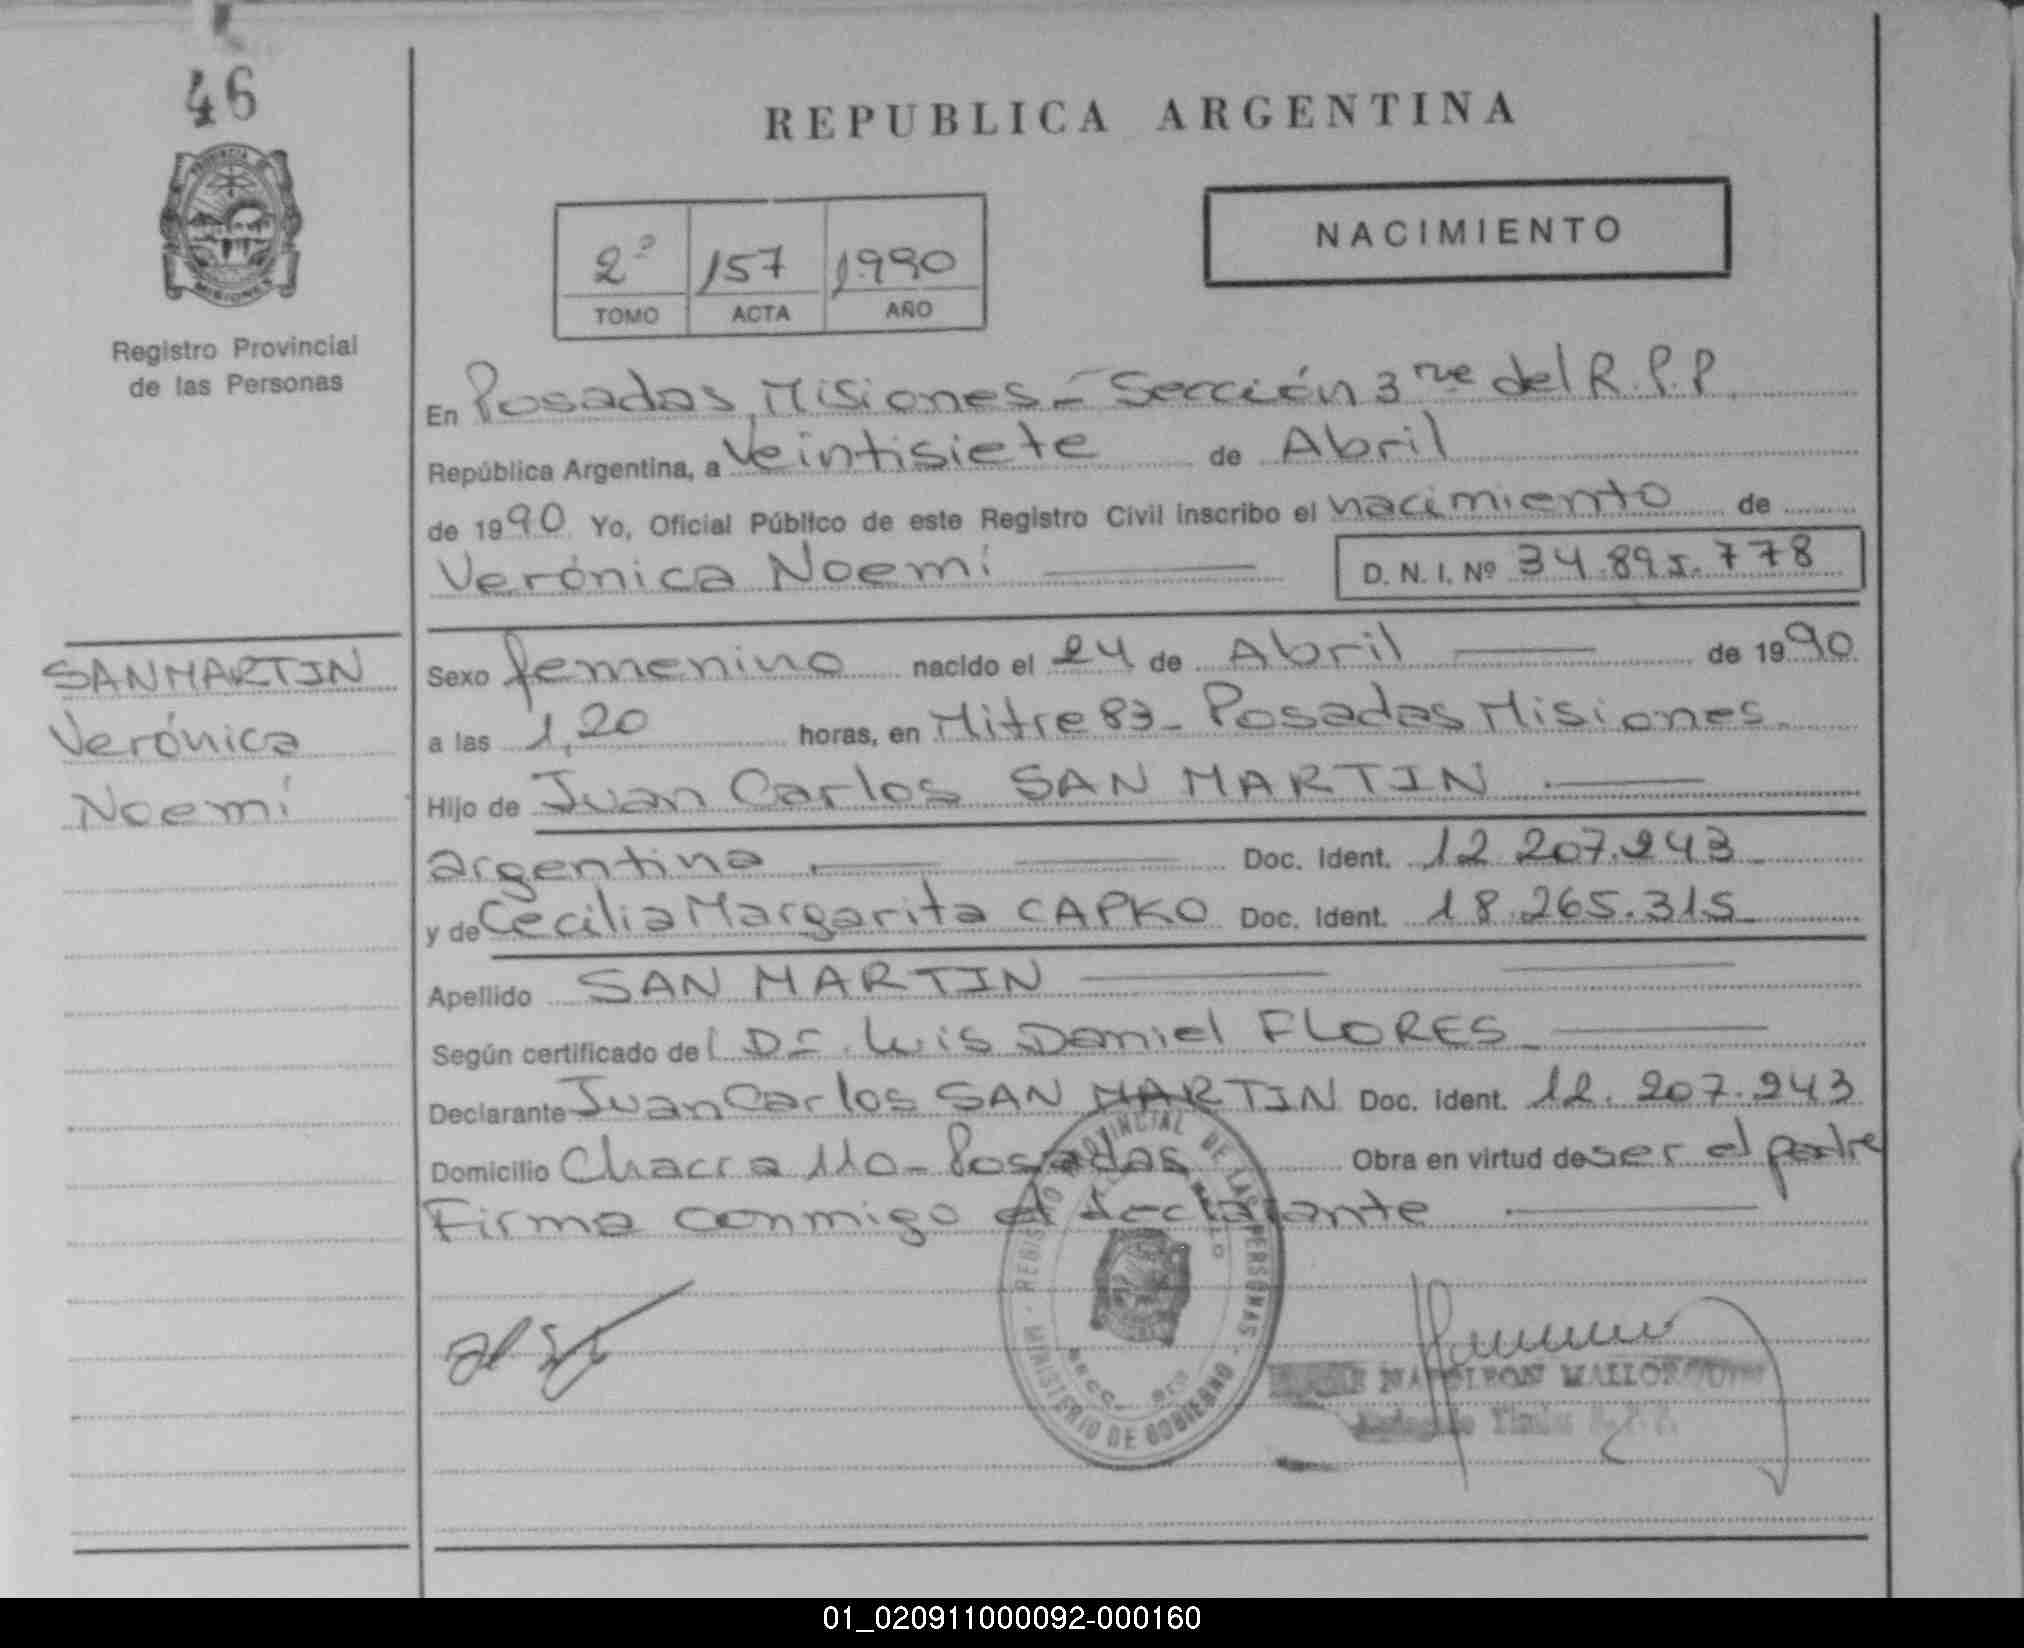 46
REPUBLICA ARGENTINA
PROVINCIA DE
MISIONES
Registro Provincial
de las Personas
NACIMIENTO
2º 157 1990
TOMO ACTA AÑO
En Posadas, Misiones - Sección 3ra del R.P.P.
República Argentina, a Veintisiete de Abril
de 1990 Yo, Oficial Público de este Registro Civil inscribo el nacimiento de
Verónica Noemí D. N. I. Nº 34.895.778
SAN MARTIN
Verónica
Noemí
Sexo femenino nacido el 24 de Abril de 1990
a las 1,20 horas, en Mitre 83 - Posadas Misiones.
Hijo de Juan Carlos SAN MARTIN
argentina Doc. Ident. 12.207.243
y de Cecilia Margarita CAPKO Doc. Ident. 18.265.315
Apellido SAN MARTIN
Según certificado del Dr. Luis Daniel FLORES
Declarante Juan Carlos SAN MARTIN Doc. Ident. 12.207.243
Domicilio Chacra 110 - Posadas Obra en virtud de ser el padre
Firma conmigo el declarante
REGISTRO PROVINCIAL DE LAS PERSONAS
MINISTERIO DE GOBIERNO
NAPOLEON
01_020911000092-000160